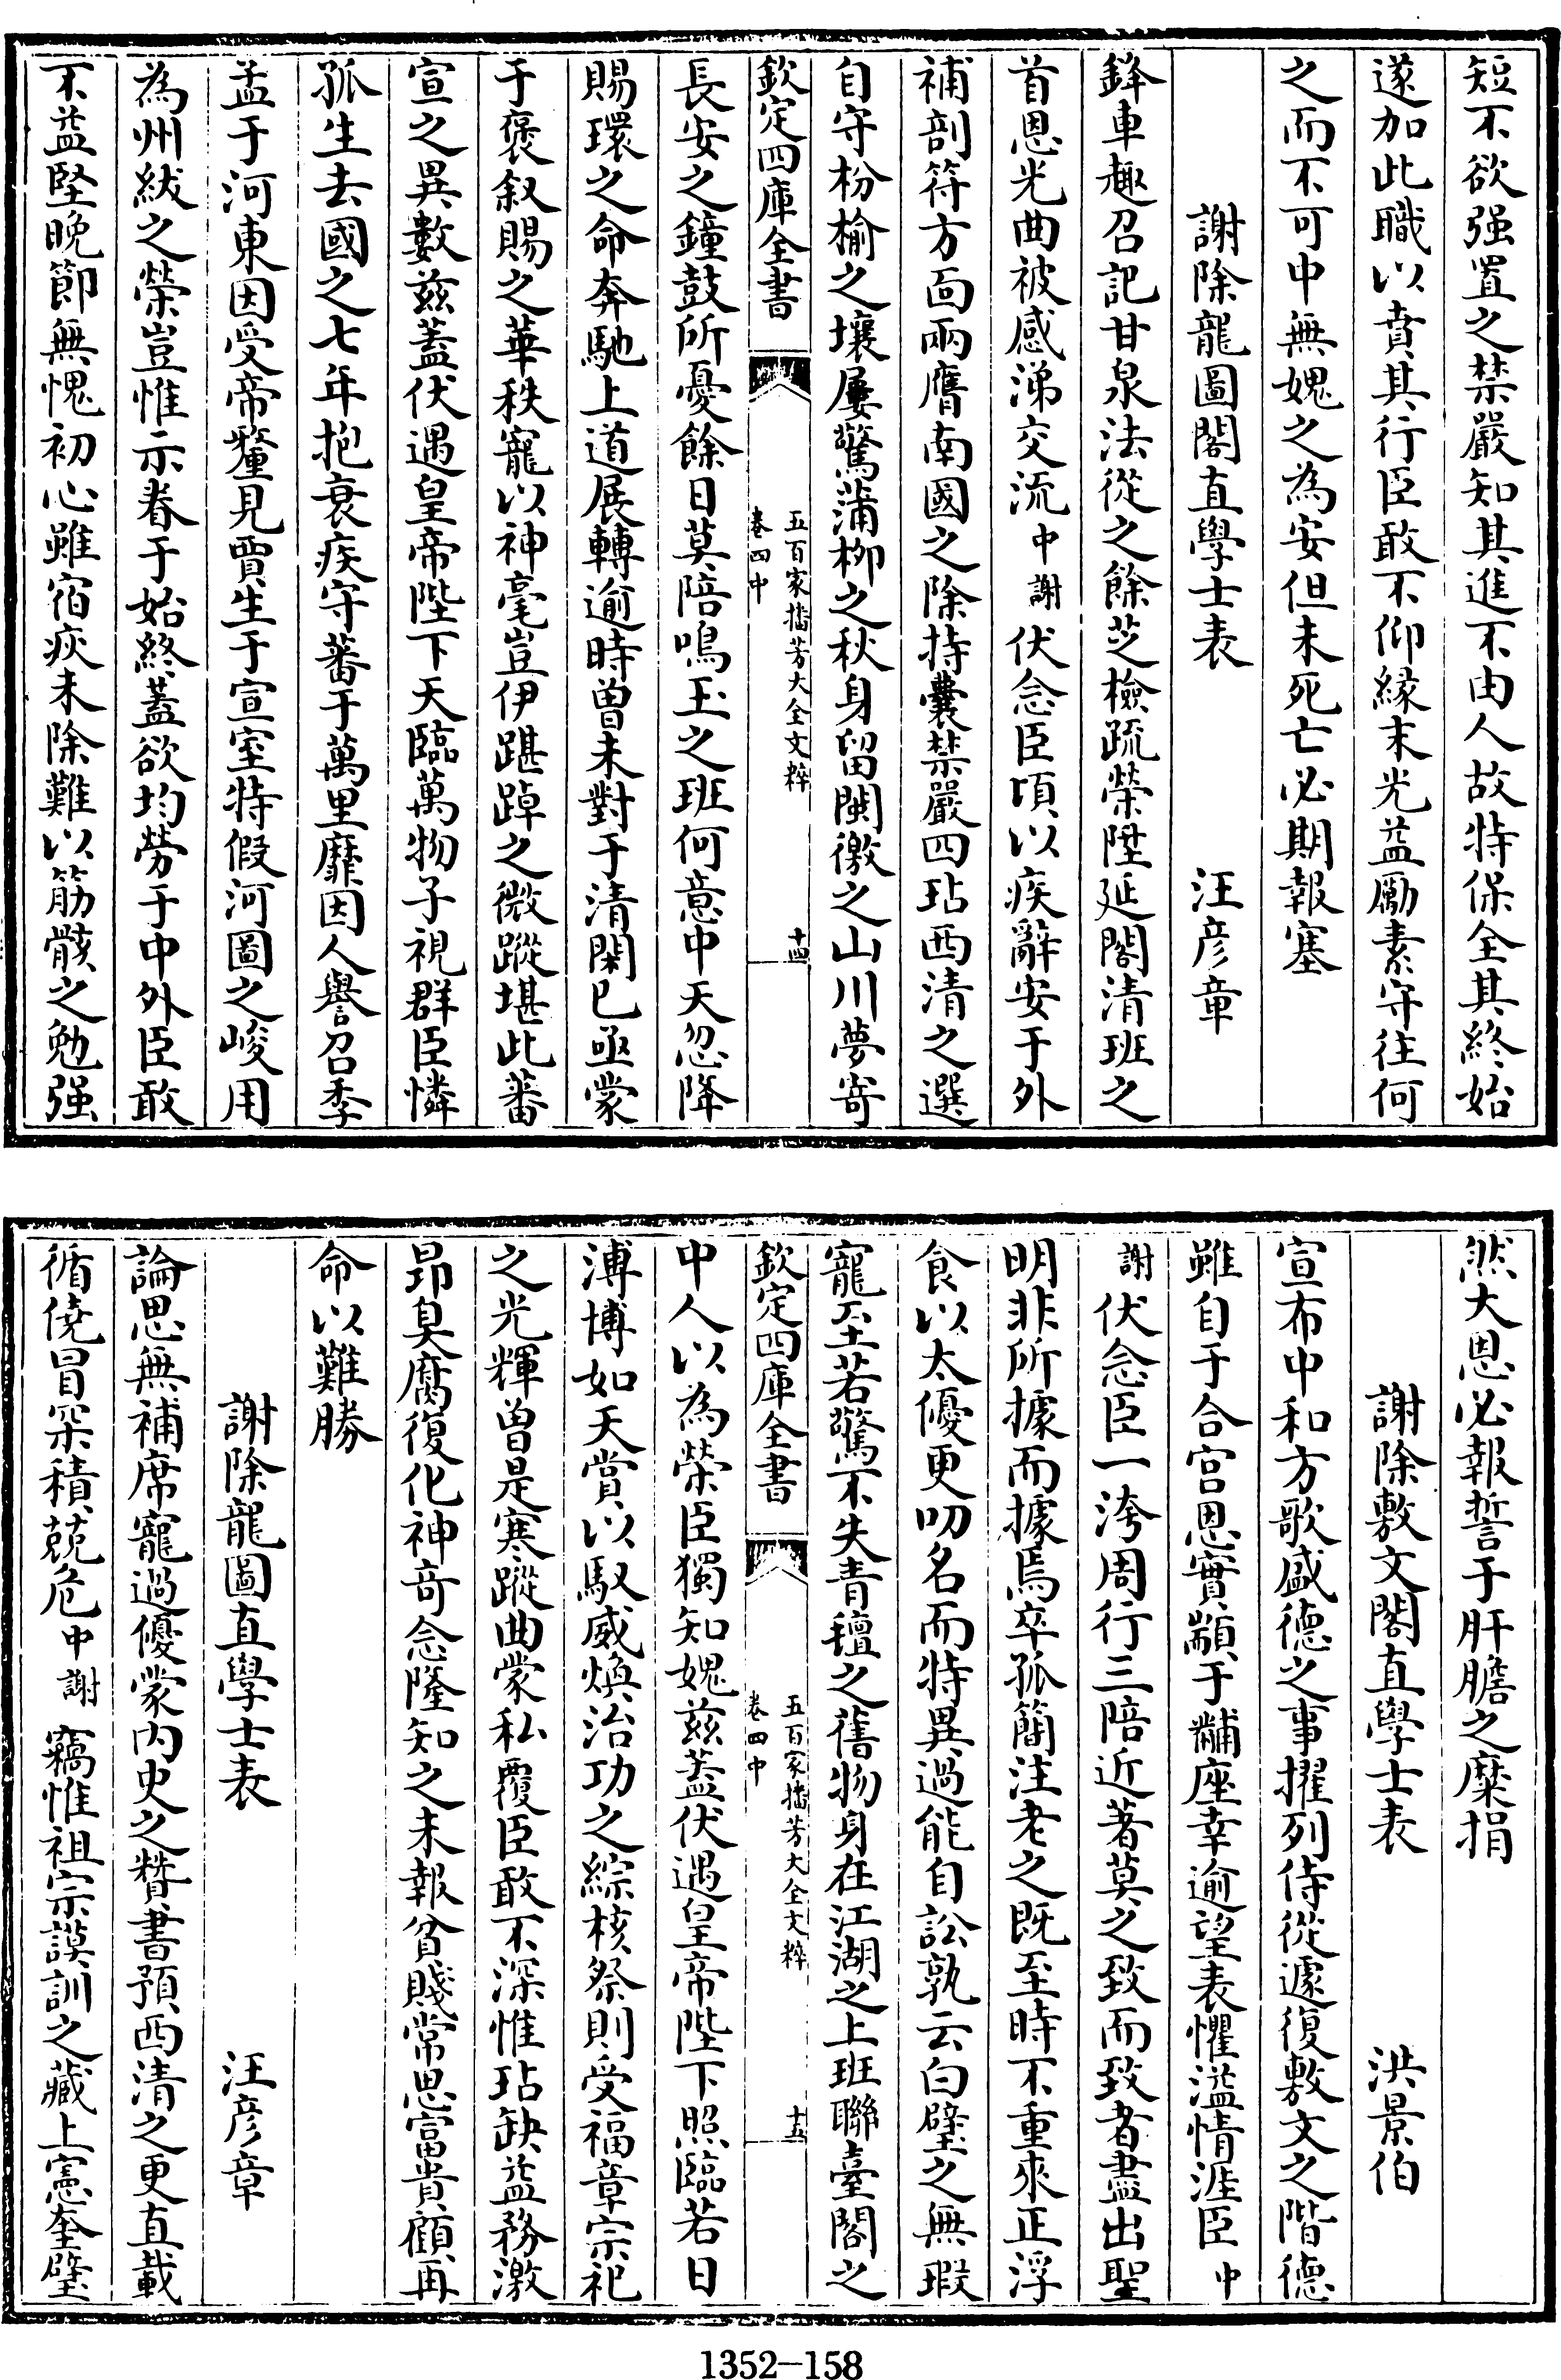 短不欲强置之禁嚴知其進不由人故特保全其終始
遂加此職以賁其行臣敢不仰縁末光益勵素守往何
之而不可中無媿之為安但未死亡必期報塞
謝除龍圖閣直學士表 汪彦章
鋒車趣召記甘泉法從之餘芝檢疏榮陞延閣清班之
首恩光曲被感涕交流中謝伏念臣頃以疾辭安于外
補剖符方面兩膺南國之除持橐禁嚴四玷西清之選
自守枌榆之壤屢驚蒲栁之秋身留閩徼之山川夢寄
欽定四庫全書 五百家播芳大全文粹 卷四中 十四
長安之鐘鼓所憂餘日莫陪鳴玉之班何意中天忽降
賜環之命奔馳上道展轉逾時曽未對于清閑已亟蒙
于褒叙賜之華秩寵以神毫豈伊踸踔之微蹤堪此蕃
宣之異數兹葢伏遇皇帝陛下天臨萬物子視群臣憐
孤生去國之七年抱衰疾守蕃于萬里靡因人譽召季
孟于河東因受帝釐見賈生于宣室特假河圖之峻用
為州紱之榮豈惟示眷于始終葢欲均勞于中外臣敢
不益堅晚節無愧初心雖宿疢未除難以筋骸之勉强
然大恩必報誓于肝膽之糜捐
謝除敷文閣直學士表 洪景伯
宣布中和方歌盛德之事擢列侍從遽復敷文之階德
雖自于合宫恩實顓于黼座幸逾望表懼溢情涯臣中
謝伏念臣一洿周行三陪近著莫之致而致者盡出聖
明非所據而據焉卒孤簡注老之既至時不重來正浮
食以太優更叨名而特異過能自訟孰云白璧之無瑕
寵至若驚不失青氊之舊物身在江湖之上班聯臺閣之
欽定四庫全書 五百家播芳大全文粹 卷四中 十五
中人以為榮臣獨知媿兹葢伏遇皇帝陛下照臨若日
溥博如天賞以馭威煥治功之綜核祭則受福章宗祀
之光輝曽是寒蹤曲蒙私覆臣敢不深惟玷缺益務激
昂臭腐復化神奇念隆知之未報貧賤常思富貴顧再
命以難勝
謝除龍圖直學士表 汪彦章
論思無補席寵過優蒙内史之贊書預西清之更直載
循僥冒罙積兢危中謝竊惟祖宗謨訓之藏上憲奎璧
1352—158